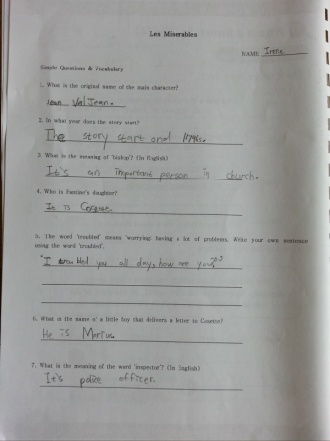 Les Miserables
NAME Irene
Simple Questions & Vocabulary
1. What is the original name of the main character?
Jean ValJean.
2. In what year does the story start?
The story start and 1796s.
3. What is the meaning of 'bishop'? (In English)
It's an important person in church.
4. Who is Fantine's daughter?
It is Cosette.
5. The word 'troubled' means 'worrying; having a lot of problems. Write your own sentence
using the word 'troubled'.
"I troubled you all day, how are you?"
6. What is the name of a little boy that delivers a letter to Cosette?
He is Marius.
7. What is the meaning of the word 'inspector'? (In English)
It's police officer.